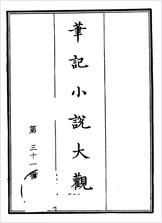 筆記小說大觀
第三十一冊